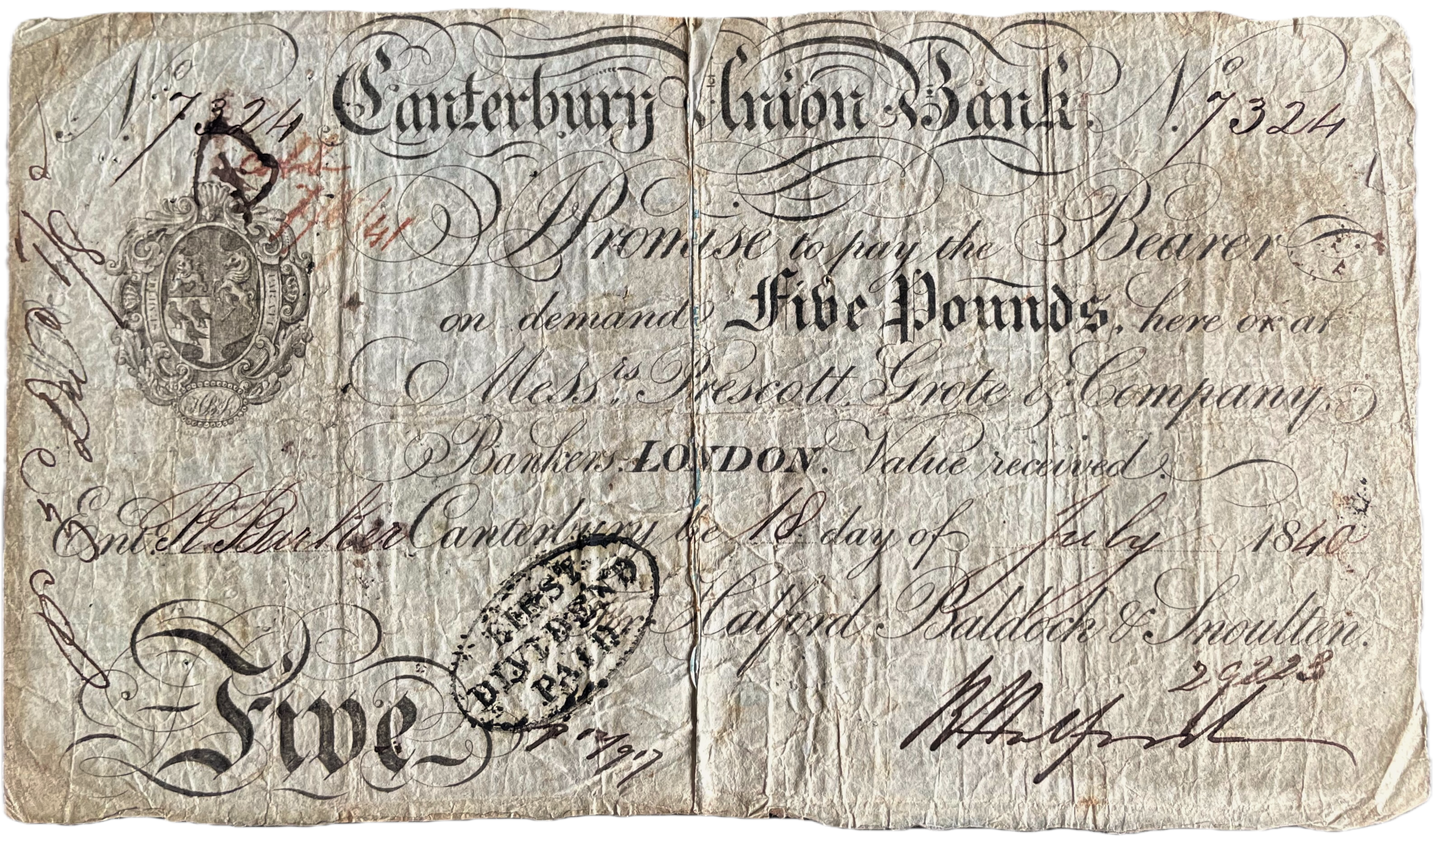 No. 7324 Canterbury Union Bank. No. 7324
I Promise to pay the Bearer
on demand Five Pounds, here or at
Messrs. Prescott, Grote & Company,
Bankers, LONDON. Value received.
Entd. R Barker Canterbury the 18 day of July 1840
For Halford Baldock & Snoulten.
29223
Five
FIRST
DIVIDEND
PAID